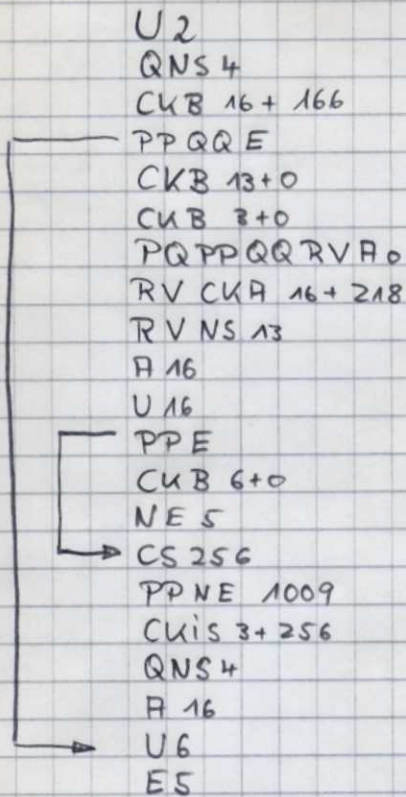 U 2
QNS 4
CKB 16 + 166
PPQQE
CKB 13+0
CKB 3+0
PQPPQQRVA0
RV CKA 16 + 218
RV NS 13
A 16
U 16
PPE
CKB 6+0
NE 5
CS 256
PPNE 1009
CKiS 3+256
QNS4
A 16
U 6
E5